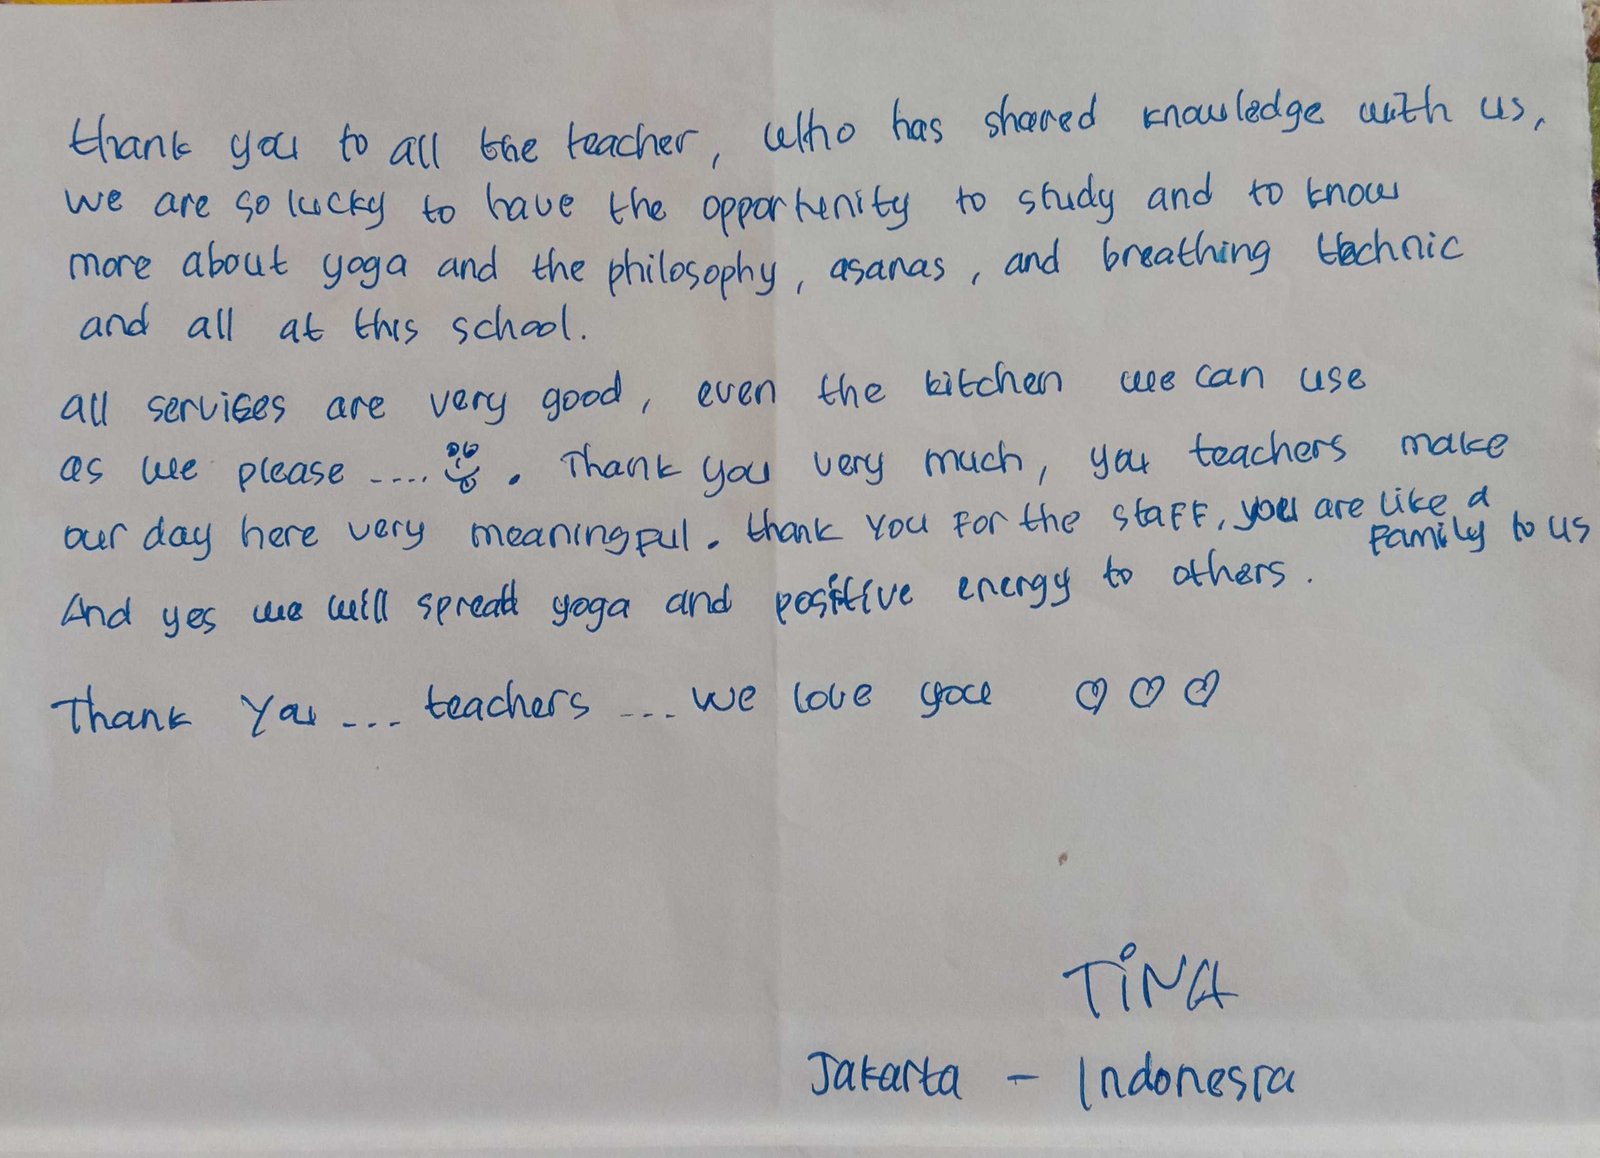 thank you to all the teacher, who has shared knowledge with us,
we are so lucky to have the opportunity to study and to know
more about yoga and the philosophy, asanas, and breathing technic
and all at this school.
all services are very good, even the kitchen we can use
as we please .... . Thank you very much, you teachers make
our day here very meaningful. thank you for the staff, you are like a
family to us
And yes we will spread yoga and positive energy to others.
Thank you ... teachers ... we love you ♡ ♡ ♡
TiNA
Jakarta - Indonesia